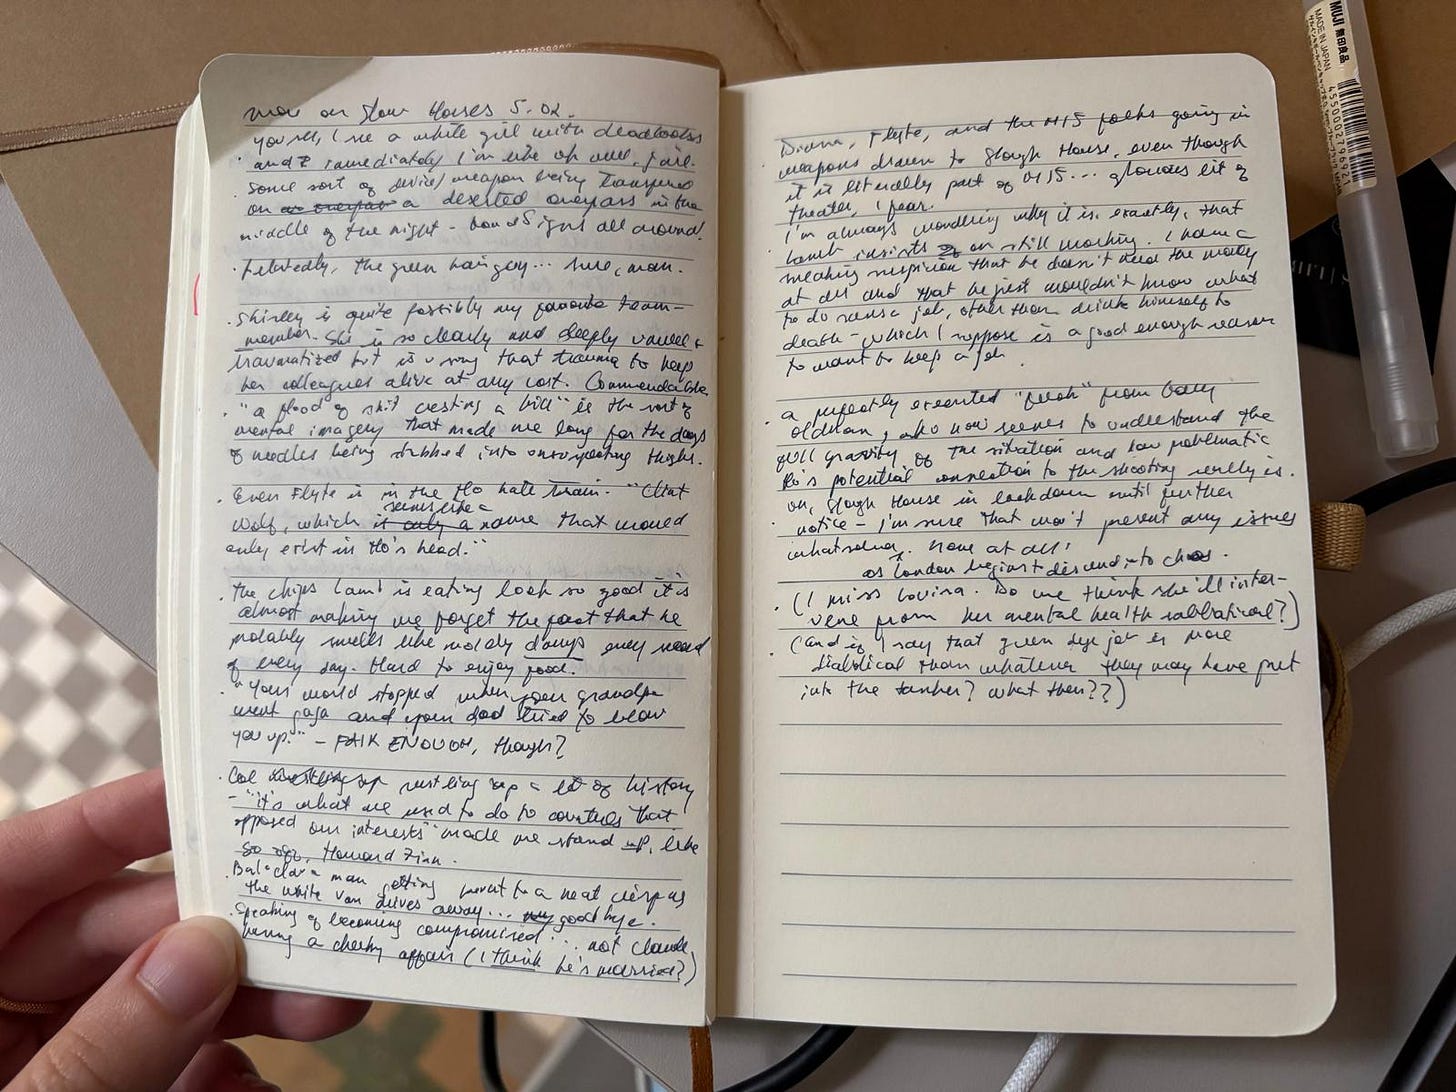 more on Slow Horses 5.02.
you all, I see a white girl with deadlocks
and I immediately I'm like oh well, jail.
· some sort of device/weapon being transferred
on as overpass a deserted overpass in the
middle of the night - bad signs all around.
· Relatedly, the green hair guy... sure, man.
· Shirley is quite possibly my favorite team-
member. She is so clearly and deeply unwell &
traumatized but is using that trauma to keep
her colleagues alive at any cost. Commendable
· "a flood of shit cresting a hill" is the sort of
mental imagery that made me long for the days
of needles being stabbed into unsuspecting thighs.
· Even Flyte is in the Ho hate train. "Chat
seems like a
Wolf, which is only a name that would
only exist in Ho's head."
· the chips Lamb is eating look so good it is
almost making me forget the fact that he
probably smells like moldy dumps every second
of every day. Hard to enjoy food.
· "Your world stopped when your grandpa
went gaga and your dad tried to blow
you up." - FAIR ENOUGH, though?
· Coe rustling up a lot of history
- "it's what we used to do to countries that
opposed our interests" made me stand up, like
so off, Howard Zinn.
· Balaclava man getting burnt to a neat crisp as
the white van drives away... my goodbye.
· Speaking of becoming compromised... not Claude
having a cheeky affair (I think he's married?)
· Diana, Flyte, and the MI5 folks going in
weapons drawn to Slough House, even though
it is literally part of MI5... glorious bit of
theater, I fear.
· I'm always wondering why it is, exactly, that
Lamb insists on still working. I have a
sneaking suspicion that he doesn't need the money
at all and that he just wouldn't know what
to do sans a job, other than drink himself to
death - which I suppose is a good enough reason
to want to keep a job.
· a perfectly executed "fuck" from Gary
Oldman, who now seems to understand the
full gravity of the situation and how problematic
Ho's potential connection to the shooting really is.
· oh, Slough House in lockdown until further
notice - I'm sure that won't present any issues
whatsoever. None at all!
as London begins to descend into chaos.
· (I miss Lovina. Do we think she'll inter-
vene from her mental health sabbatical?)
· (and if I say that green dye job is more
diabolical than whatever they may have put
into the tanker? What then??)
MUJI 無印良品
MADE IN JAPAN
4550002796921